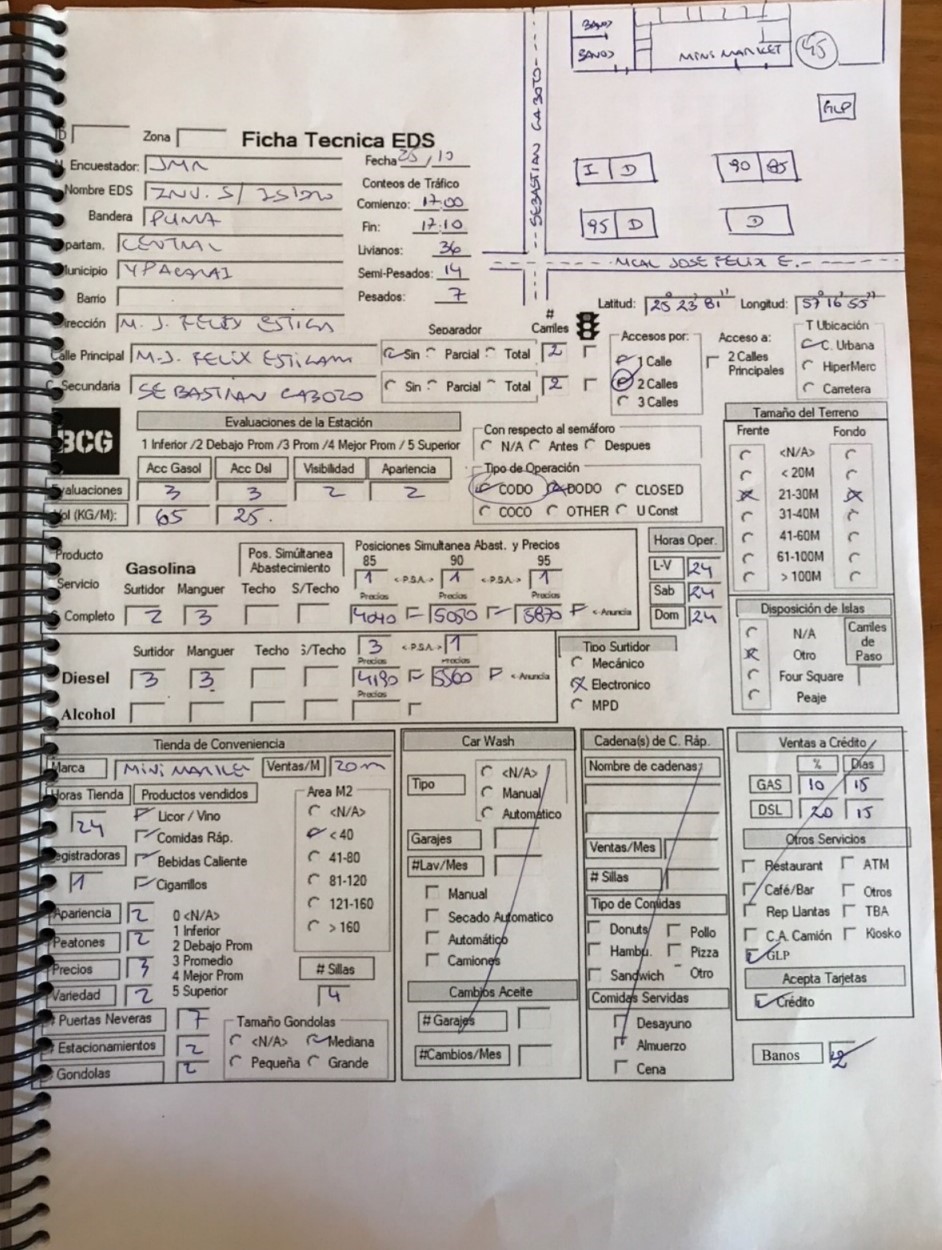 BANO
BANO
MINI MARKET
45
SEBASTIAN CABOTO
GLP
I D
90 85
95 D
D
MCAL JOSE FELIX E.
ID Zona
Ficha Tecnica EDS
Encuestador: JMR
Fecha 25/10
Nombre EDS INV. S/
Conteos de Tráfico
Bandera PUMA
Comienzo: 17:00
Fin: 17:10
partam. CENTRAL
Livianos: 36
unicipio YPACARAI
Semi-Pesados: 14
Barrio
Pesados: 7
irección M. J. FELIX ESTIGA
Latitud: 25° 23' 81" Longitud: 57° 16' 55"
Separador
# Carriles
Calle Principal M.J. FELIX ESTIGARR
Sin Parcial Total 2
C. Secundaria SEBASTIAN CABOZO
Sin Parcial Total 2
Accesos por:
1 Calle
2 Calles
3 Calles
Acceso a:
2 Calles
Principales
T Ubicación
C. Urbana
HiperMerc
Carretera
BCG
Evaluaciones de la Estación
1 Inferior /2 Debajo Prom /3 Prom /4 Mejor Prom / 5 Superior
Acc Gasol Acc Dsl Visibilidad Apariencia
Evaluaciones 3 3 2 2
Vol (KG/M): 65 25
Con respecto al semáforo
N/A Antes Despues
Tipo de Operación
CODO DODO CLOSED
COCO OTHER U Const
Tamaño del Terreno
Frente Fondo
<N/A>
< 20M
21-30M
31-40M
41-60M
61-100M
> 100M
Producto
Servicio
Completo
Gasolina
Pos. Simúltanea
Abastecimiento
Posiciones Simultanea Abast. y Precios
85 90 95
1 <-P.S.A.-> 1 <-P.S.A.-> 1
Surtidor Manguer Techo S/Techo
Precios Precios Precios
2 3 4040 5050 5870 <-Anuncia
Horas Oper.
L-V 24
Sab 24
Dom 24
Surtidor Manguer Techo S/Techo
3 <-P.S.A.-> 1
Precios Precios
Diesel 3 3 4190 5560 <-Anuncia
Precios
Alcohol
Tipo Surtidor
Mecánico
Electronico
MPD
Disposición de Islas
N/A
Otro
Four Square
Peaje
Carriles
de
Paso
Tienda de Conveniencia
Marca MINI MARKET Ventas/M 20m
Horas Tienda Productos vendidos
24
Licor / Vino
Comidas Ráp.
Bebidas Caliente
Cigarrillos
egistradoras
1
Area M2
<N/A>
< 40
41-80
81-120
121-160
> 160
Apariencia 2
Peatones 2
Precios 3
Variedad 2
0 <N/A>
1 Inferior
2 Debajo Prom
3 Promedio
4 Mejor Prom
5 Superior
# Sillas
4
# Puertas Neveras 7
# Estacionamientos 2
Gondolas 2
Tamaño Gondolas
<N/A> Mediana
Pequeña Grande
Car Wash
Tipo
<N/A>
Manual
Automático
Garajes
#Lav/Mes
Manual
Secado Automatico
Automático
Camiones
Cambios Aceite
# Garajes
#Cambios/Mes
Cadena(s) de C. Ráp.
Nombre de cadenas:
Ventas/Mes
# Sillas
Tipo de Comidas
Donuts Pollo
Hambu. Pizza
Sandwich Otro
Comidas Servidas
Desayuno
Almuerzo
Cena
Ventas a Crédito
% Días
GAS 10 15
DSL 20 15
Otros Servicios
Restaurant ATM
Café/Bar Otros
Rep Llantas TBA
C.A. Camión Kiosko
GLP
Acepta Tarjetas
Crédito
Banos 2